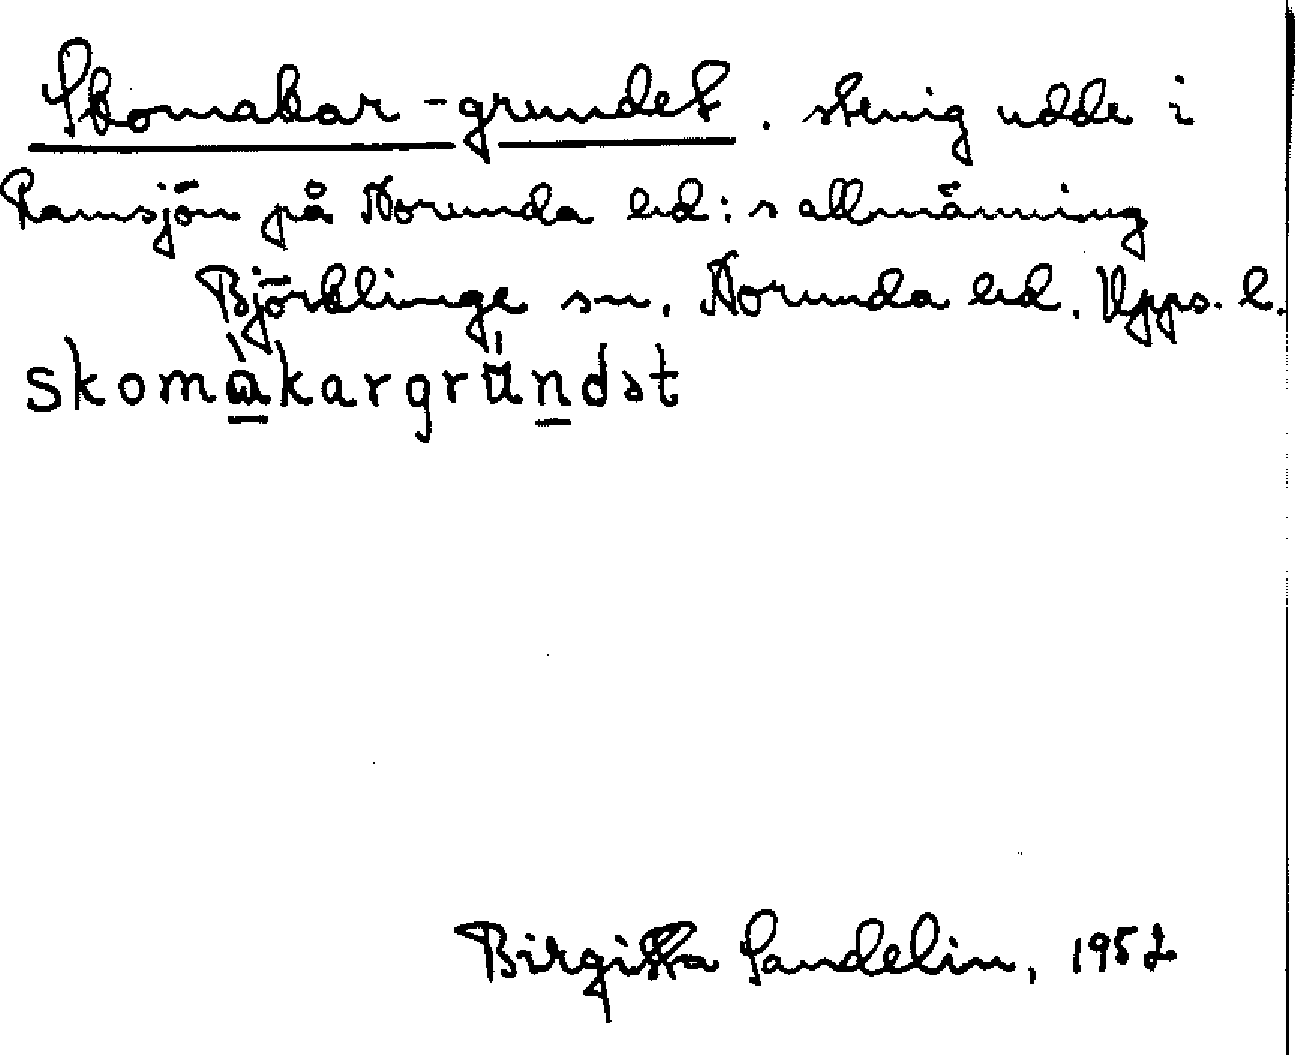 Skomakar-grundet. stenig udde i
Ramsjön på Norunda hd:s allmänning
Björklinge sn. Norunda hd. Upps. l.
skomàkargründət
Birgitta Sandelin, 1952